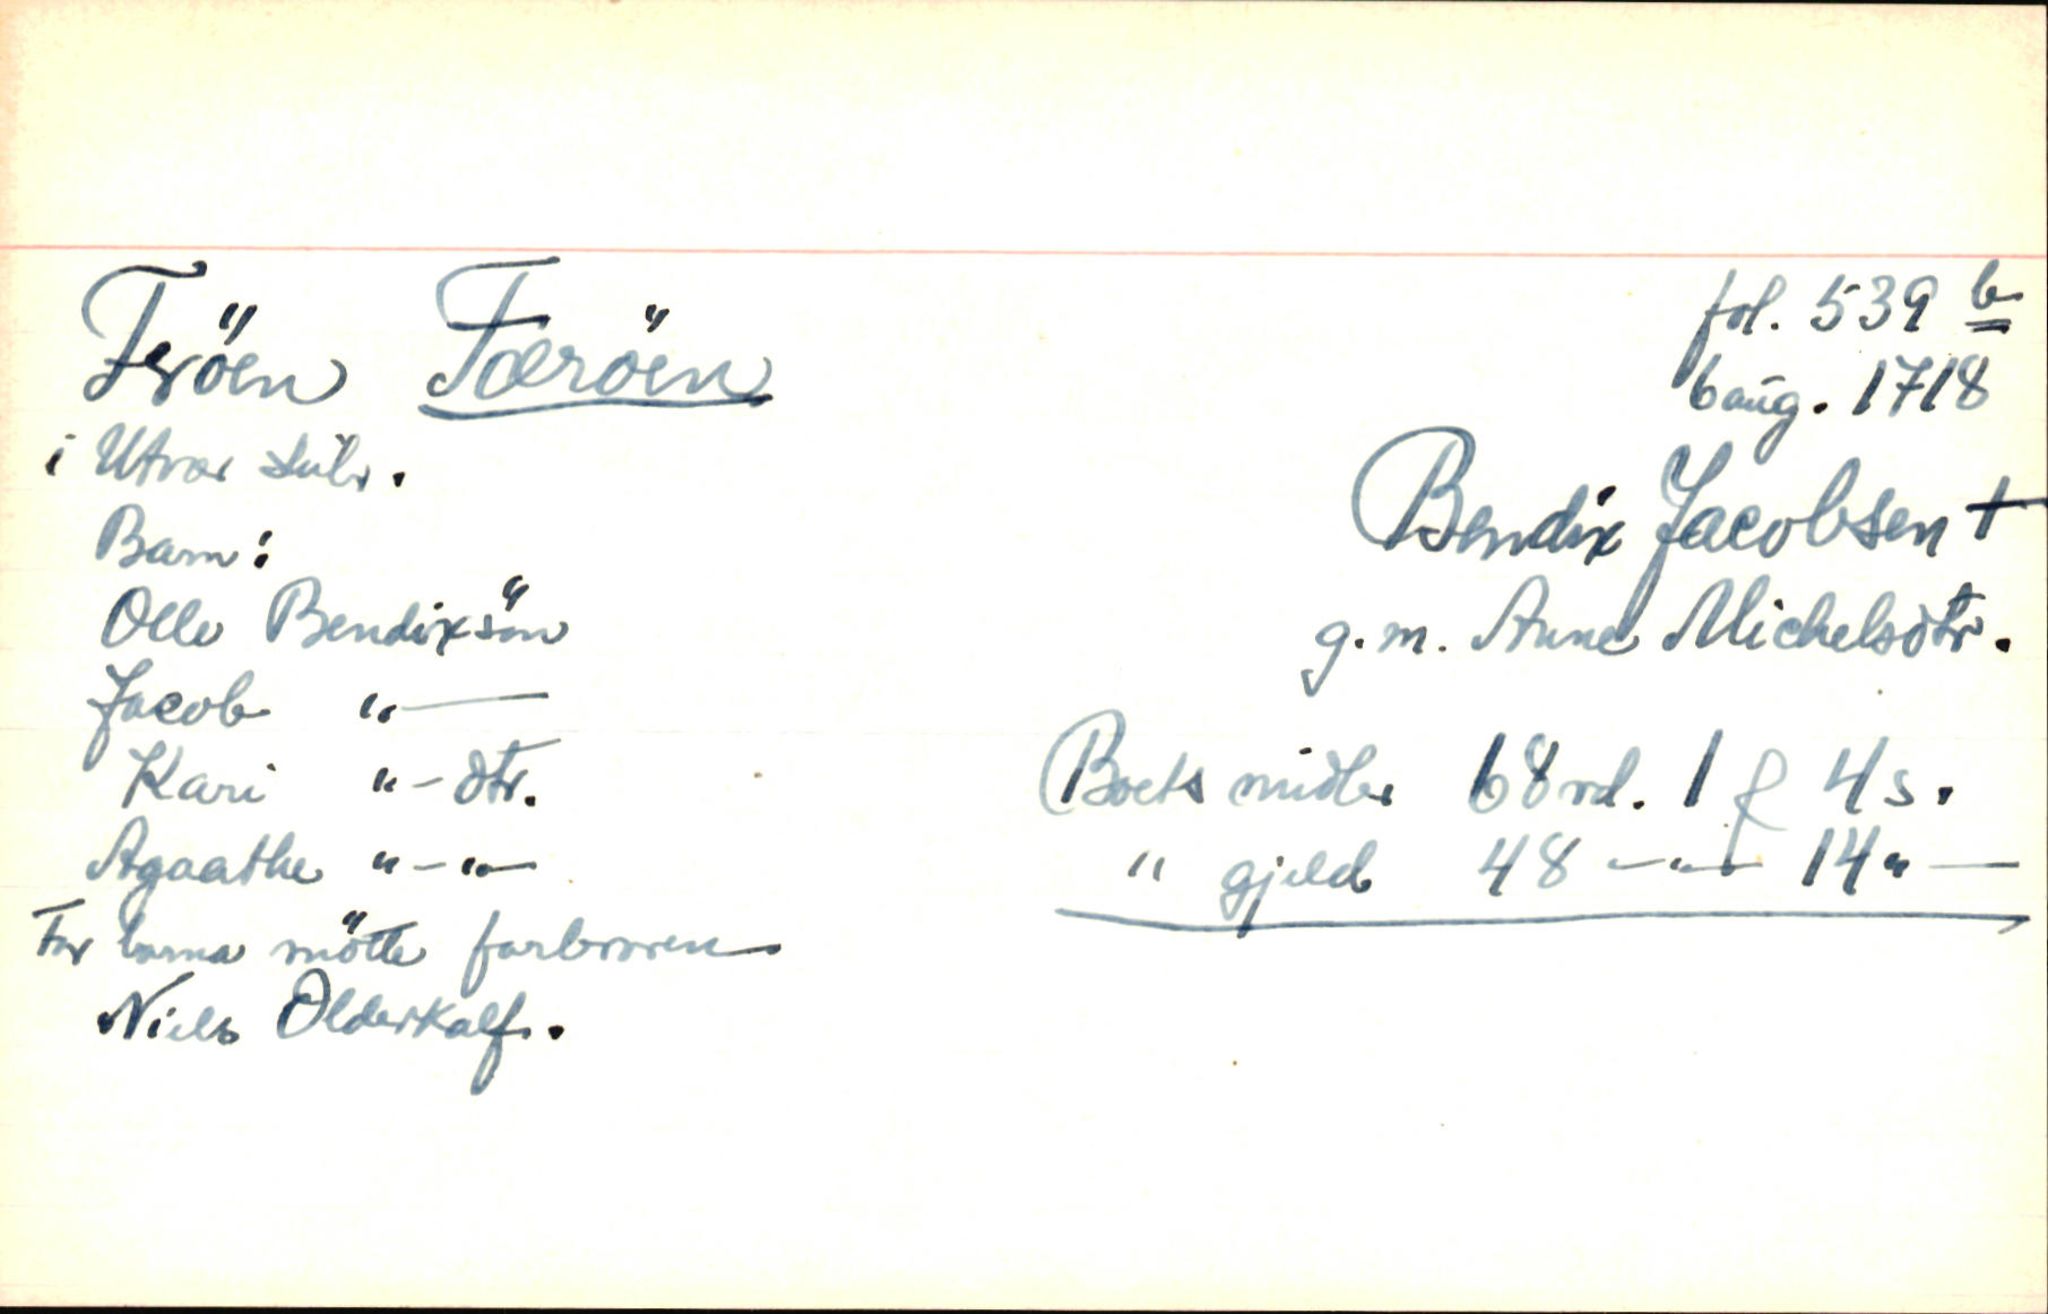 Fröen Færöen
i Utvær skibr.
Barn:
Olle Bendixsön
Jacob "—
Kari "- dtr.
Agaathe "-"—
For barna mötte farbroren
Niels Olderkalf.
fol. 539 b
6 aug. 1718
Bendix Jacobsen +
g.m. Anne Michelsdtr.
Boets midler 68 rd. 1 ƒ 4 s.
" gjeld 48 —"— 14 "—